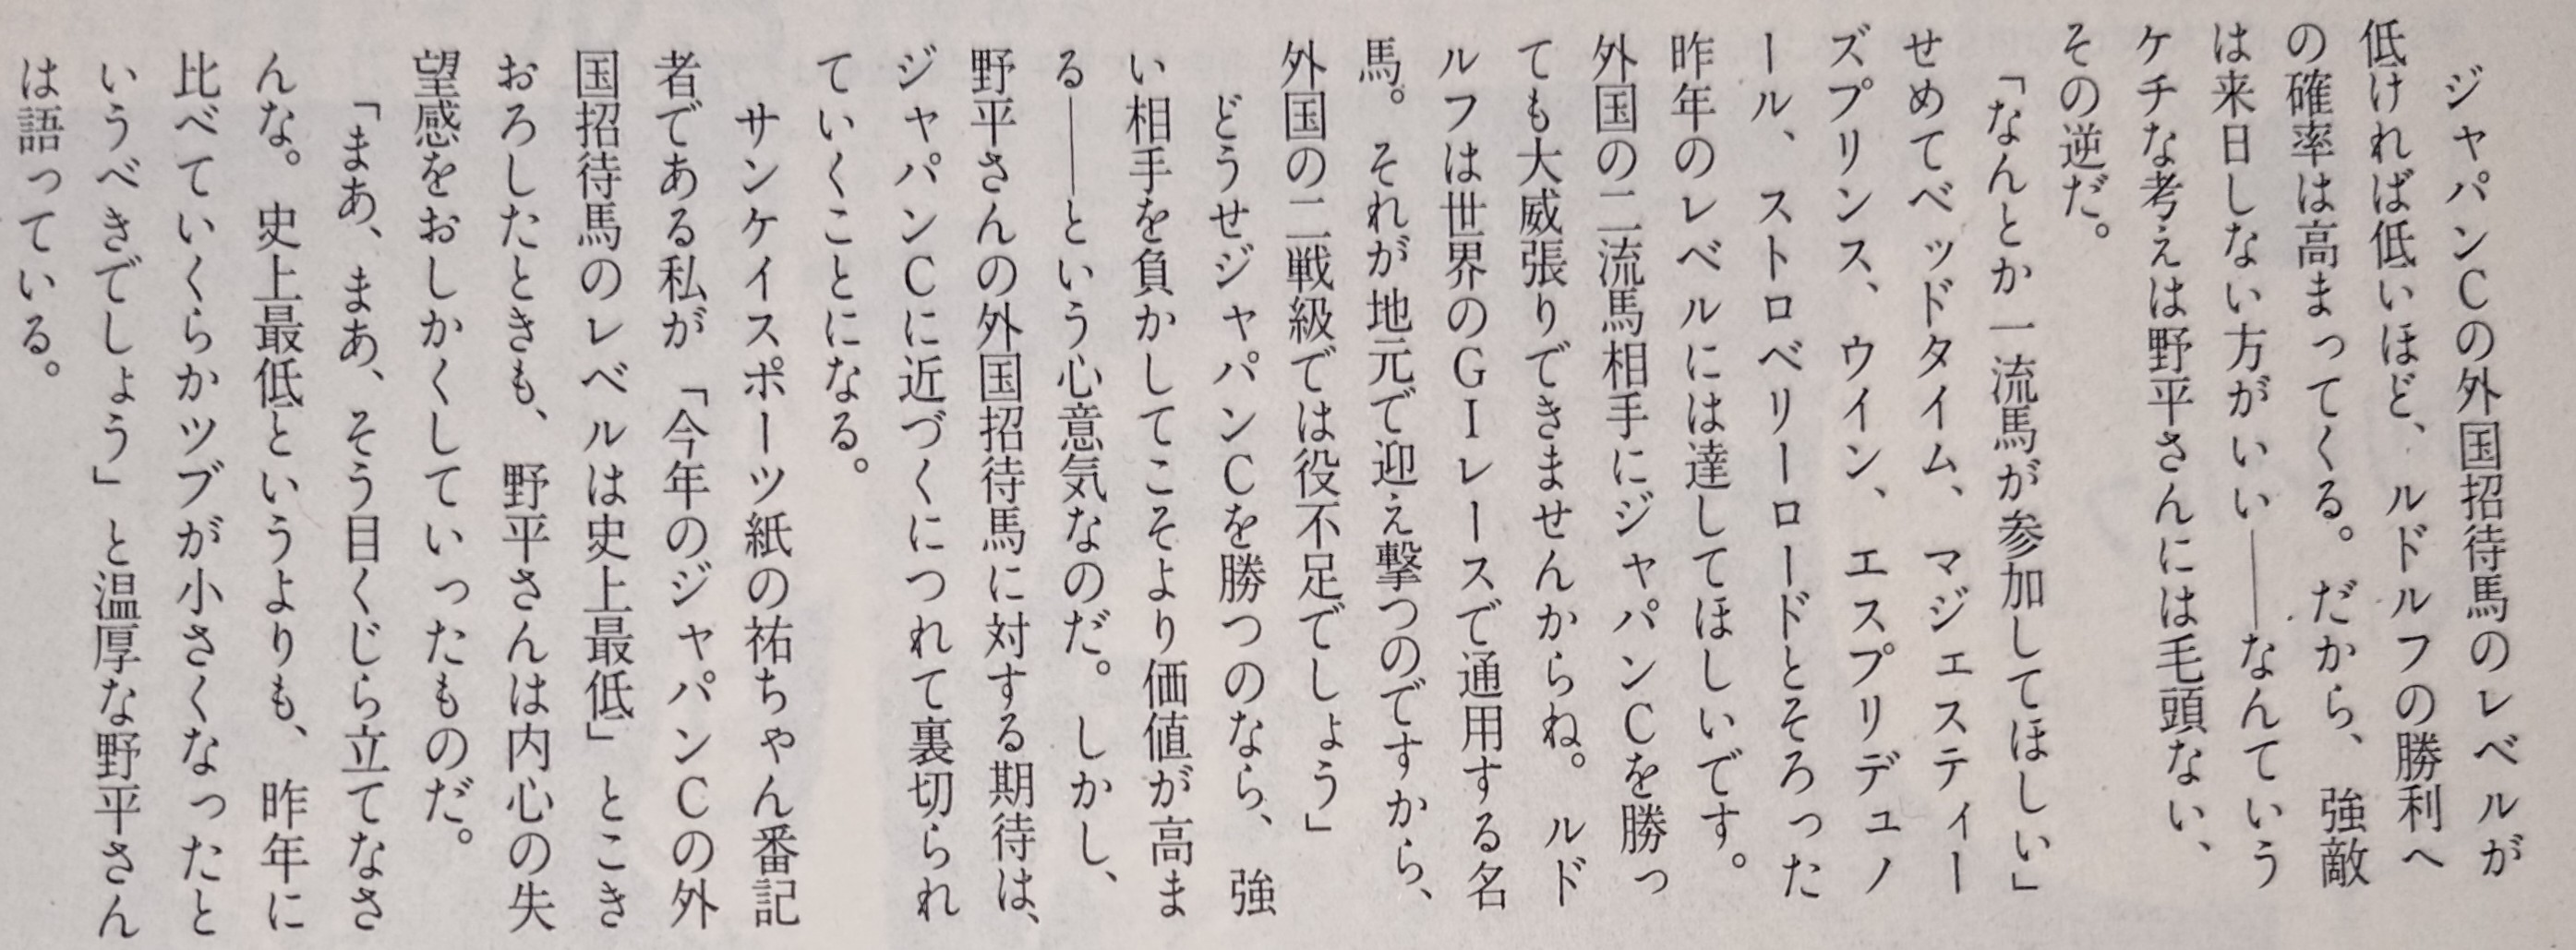 ジャパンCの外国招待馬のレベルが
低ければ低いほど、ルドルフの勝利へ
の確率は高まってくる。だから、強敵
は来日しない方がいい――なんていう
ケチな考えは野平さんには毛頭ない、
その逆だ。
「なんとか一流馬が参加してほしい」
せめてベッドタイム、マジェスティー
ズプリンス、ウイン、エスプリデュノ
ール、ストロベリーロードとそろった
昨年のレベルには達してほしいです。
外国の二流馬相手にジャパンCを勝っ
ても大威張りできませんからね。ルド
ルフは世界のGIレースで通用する名
馬。それが地元で迎え撃つのですから、
外国の二戦級では役不足でしょう」
どうせジャパンCを勝つのなら、強
い相手を負かしてこそより価値が高ま
る――という心意気なのだ。しかし、
野平さんの外国招待馬に対する期待は、
ジャパンCに近づくにつれて裏切られ
ていくことになる。
サンケイスポーツ紙の祐ちゃん番記
者である私が「今年のジャパンCの外
国招待馬のレベルは史上最低」とこき
おろしたときも、野平さんは内心の失
望感をおしかくしていったものだ。
「まあ、まあ、そう目くじら立てなさ
んな。史上最低というよりも、昨年に
比べていくらかツブが小さくなったと
いうべきでしょう」と温厚な野平さん
は語っている。